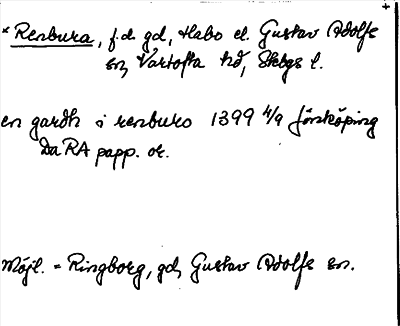 * Renbura, f.d. gd, Habo el. Gustav Adolfs
sn, Vartofta hd, Skbgs l.
en gardh i renburo 1399 4/9 Jönköping
Da RA papp. or.
Möjl. = Ringborg, gd, Gustav Adolfs sn.